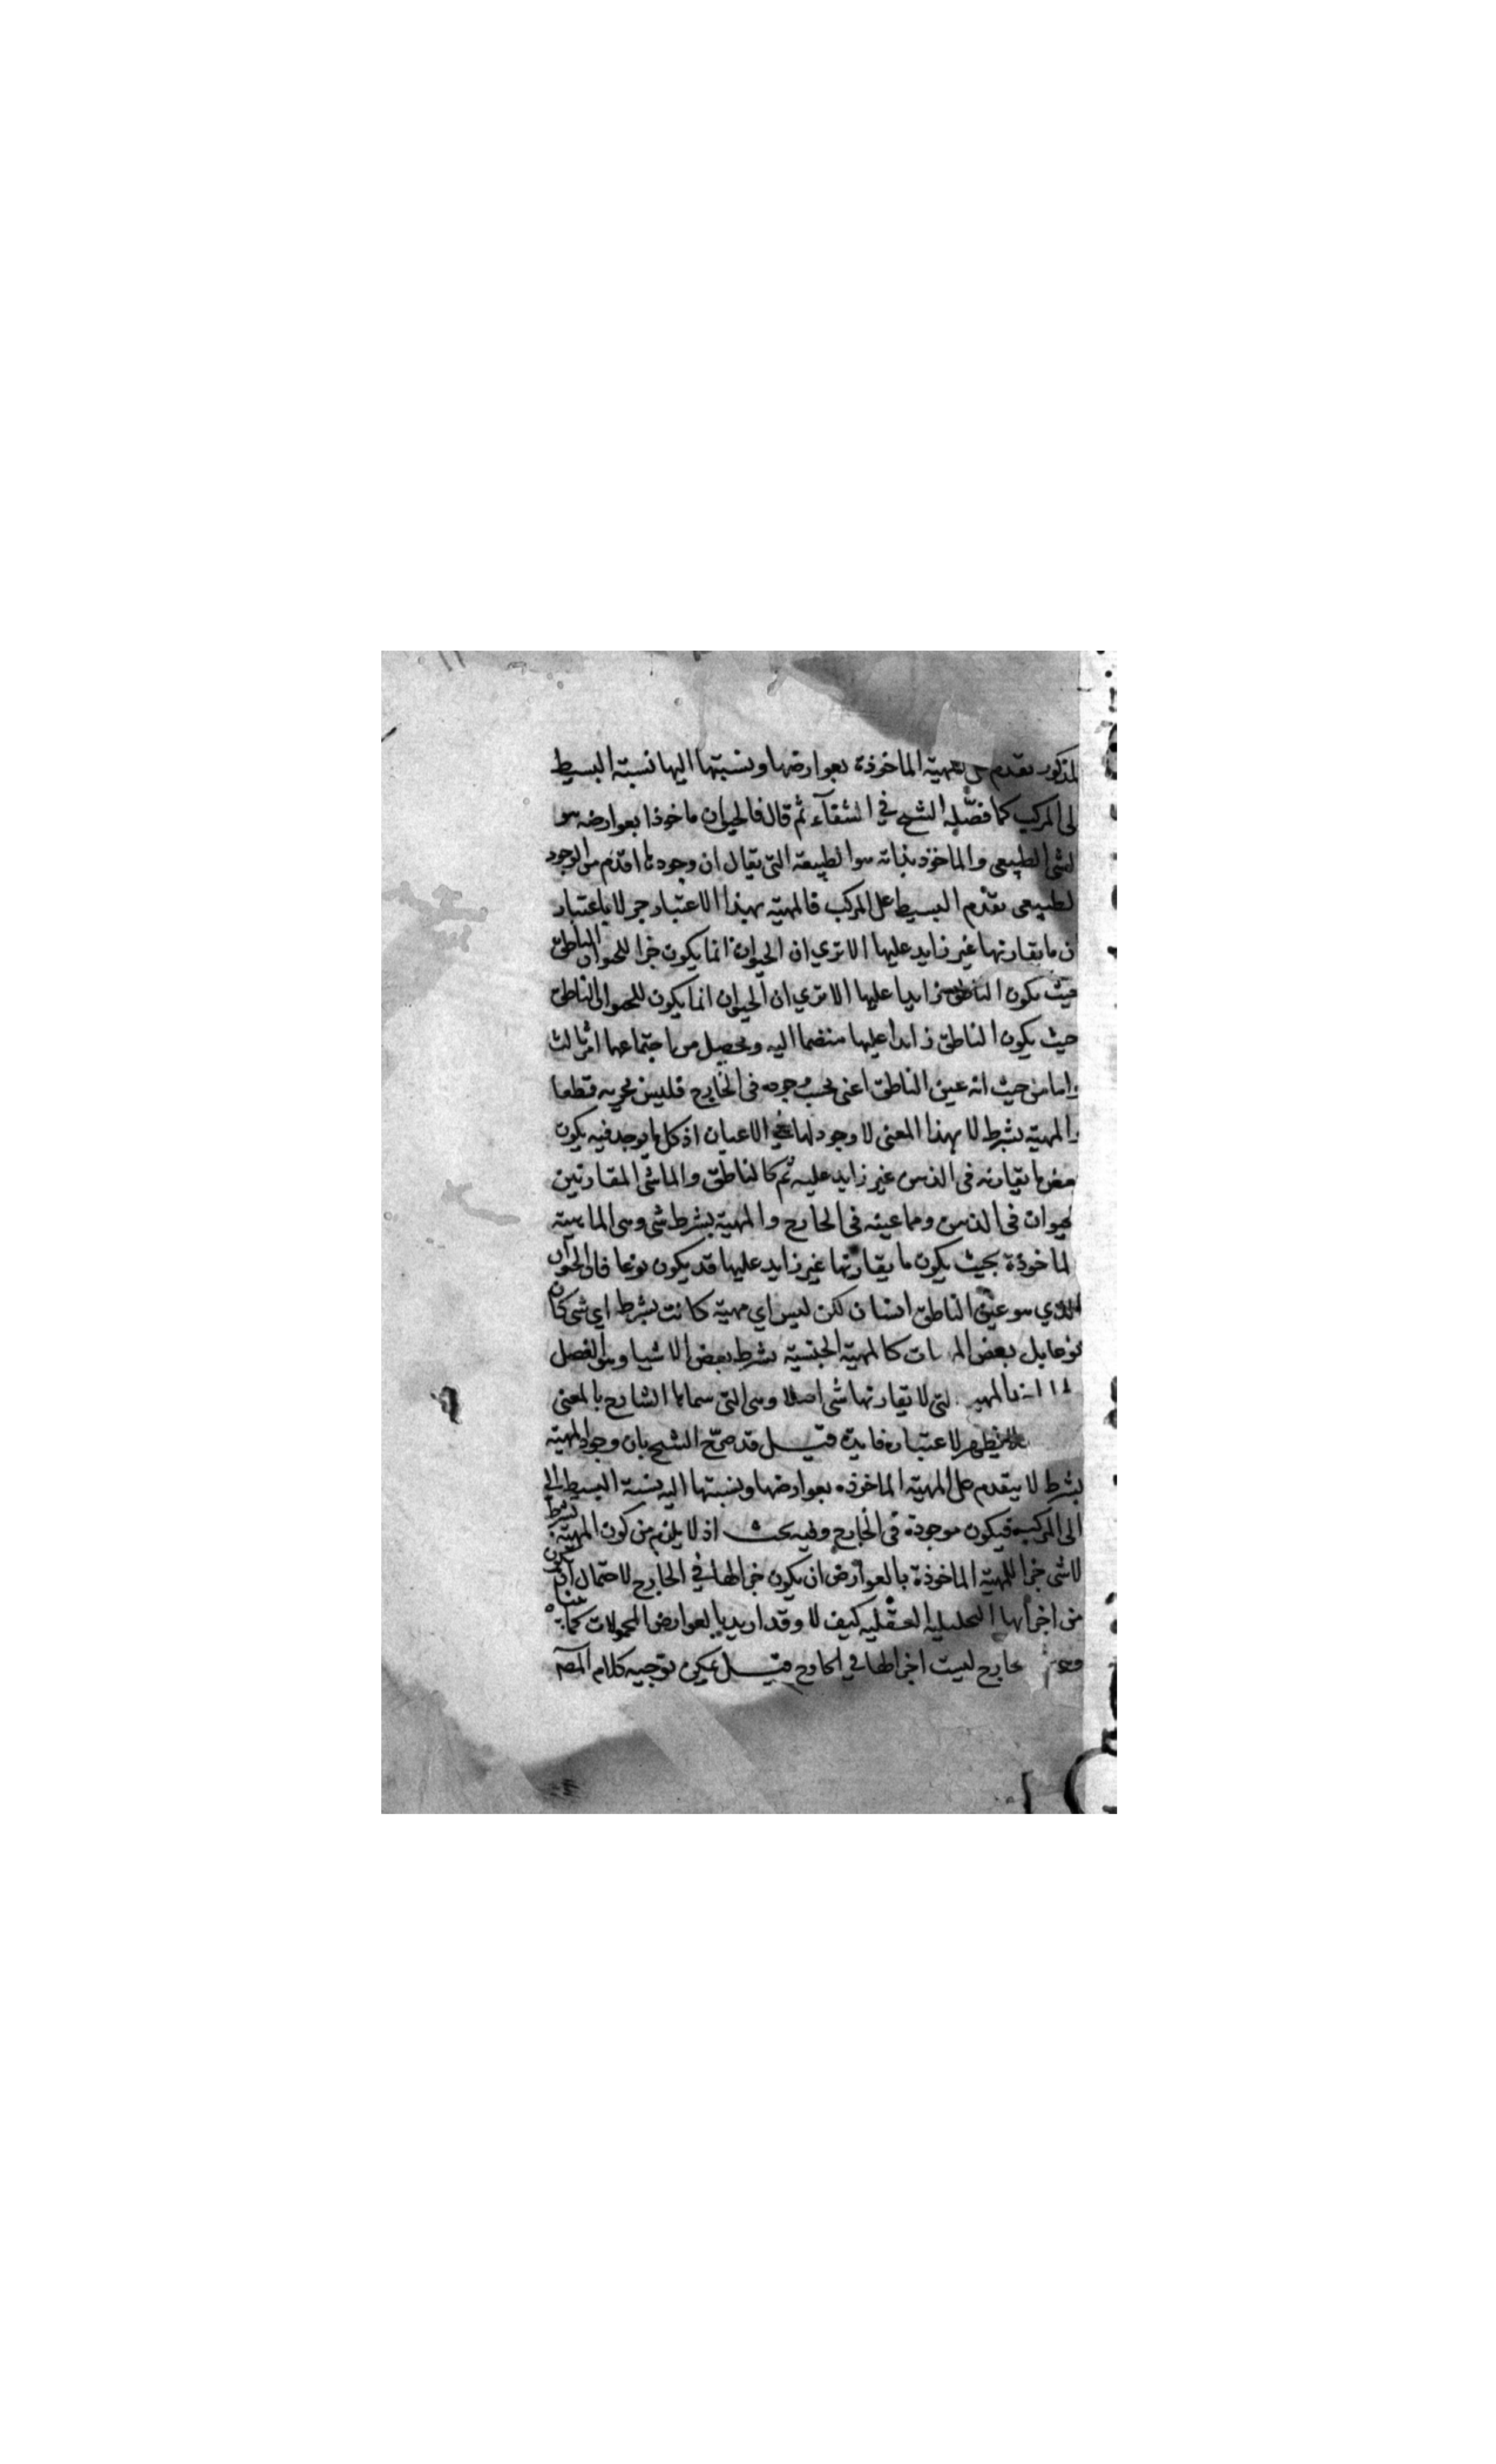 لمذكور تقدم على المهية الماخوذة بعوارضها ونسبتها اليها نسبة البسيط
الى المركب كما فصّله الشيخ في الشفآء ثم قال فالحيوان ماخوذا بعوارضه هو
الشي الطبيعي والماخوذ بذاته هو الطبيعة التي يقال ان وجودها اقدم من الوجود
لطبيعي تقدم البسيط على المركب فالمهية بهذا الاعتبار جزء لا باعتبار
ان ما يقارنها غير زايد عليها الا تري ان الحيوان انما يكون جزا للحيوان الناطق
حيث يكون الناطق زايدا عليها الا تري ان الحيوان انما يكون للحيوان الناطق
حيث يكون الناطق زايدا عليها منضما اليه ويحصل من اجتماعهما امر ثالث
واما من حيث انه عين الناطق اعني بحسب وجوده في الخارج فليس بجزء قطعا
والمهية بشرط لا بهذا المعنى لا وجود لها في الاعيان اذ كل ما يوجد فيه يكون
بعض ما يقارنه في الذهن غير زايد عليه ثم كالناطق والماشي المقارنين
لحيوان في الذهن وهما عينه في الخارج والمهية بشرط شي وهي الماهية
لماخوذة بحيث يكون ما يقارنها غير زايد عليها قد يكون نوعا فان الحيوان
الذي هو عين الناطق انسان لكن ليس اي مهية كانت بشرط اي شي كان
نوعا بل بعض كالمهية الجنسية بشرط بعض الاشيا وهو الفصل
التي لا يقارنها شي اصلا وهي التي سماها الشارح بالمعنى
فلا يظهر لاعتباره فايدة قيل قد صرّح الشيخ بان وجود المهية
بشرط لا يتقدم على المهية الماخوذه بعوارضها ونسبتها اليه نسبة البسيط الى
الى المركب فيكون موجودة في الخارج وفيه بحث اذ لا يلزم من كون المهية بشرط
لا شي جزا للمهية الماخوذة بالعوارض ان يكون جزا لها في الخارج لاحتمال ان يكون
من اجزائها التحليلية العقلية كيف لا وقد اريد بالعوارض المحمولات كما
خارج ليست اجزا لها في الخارج قيل يمكن توجيه كلام المصـ